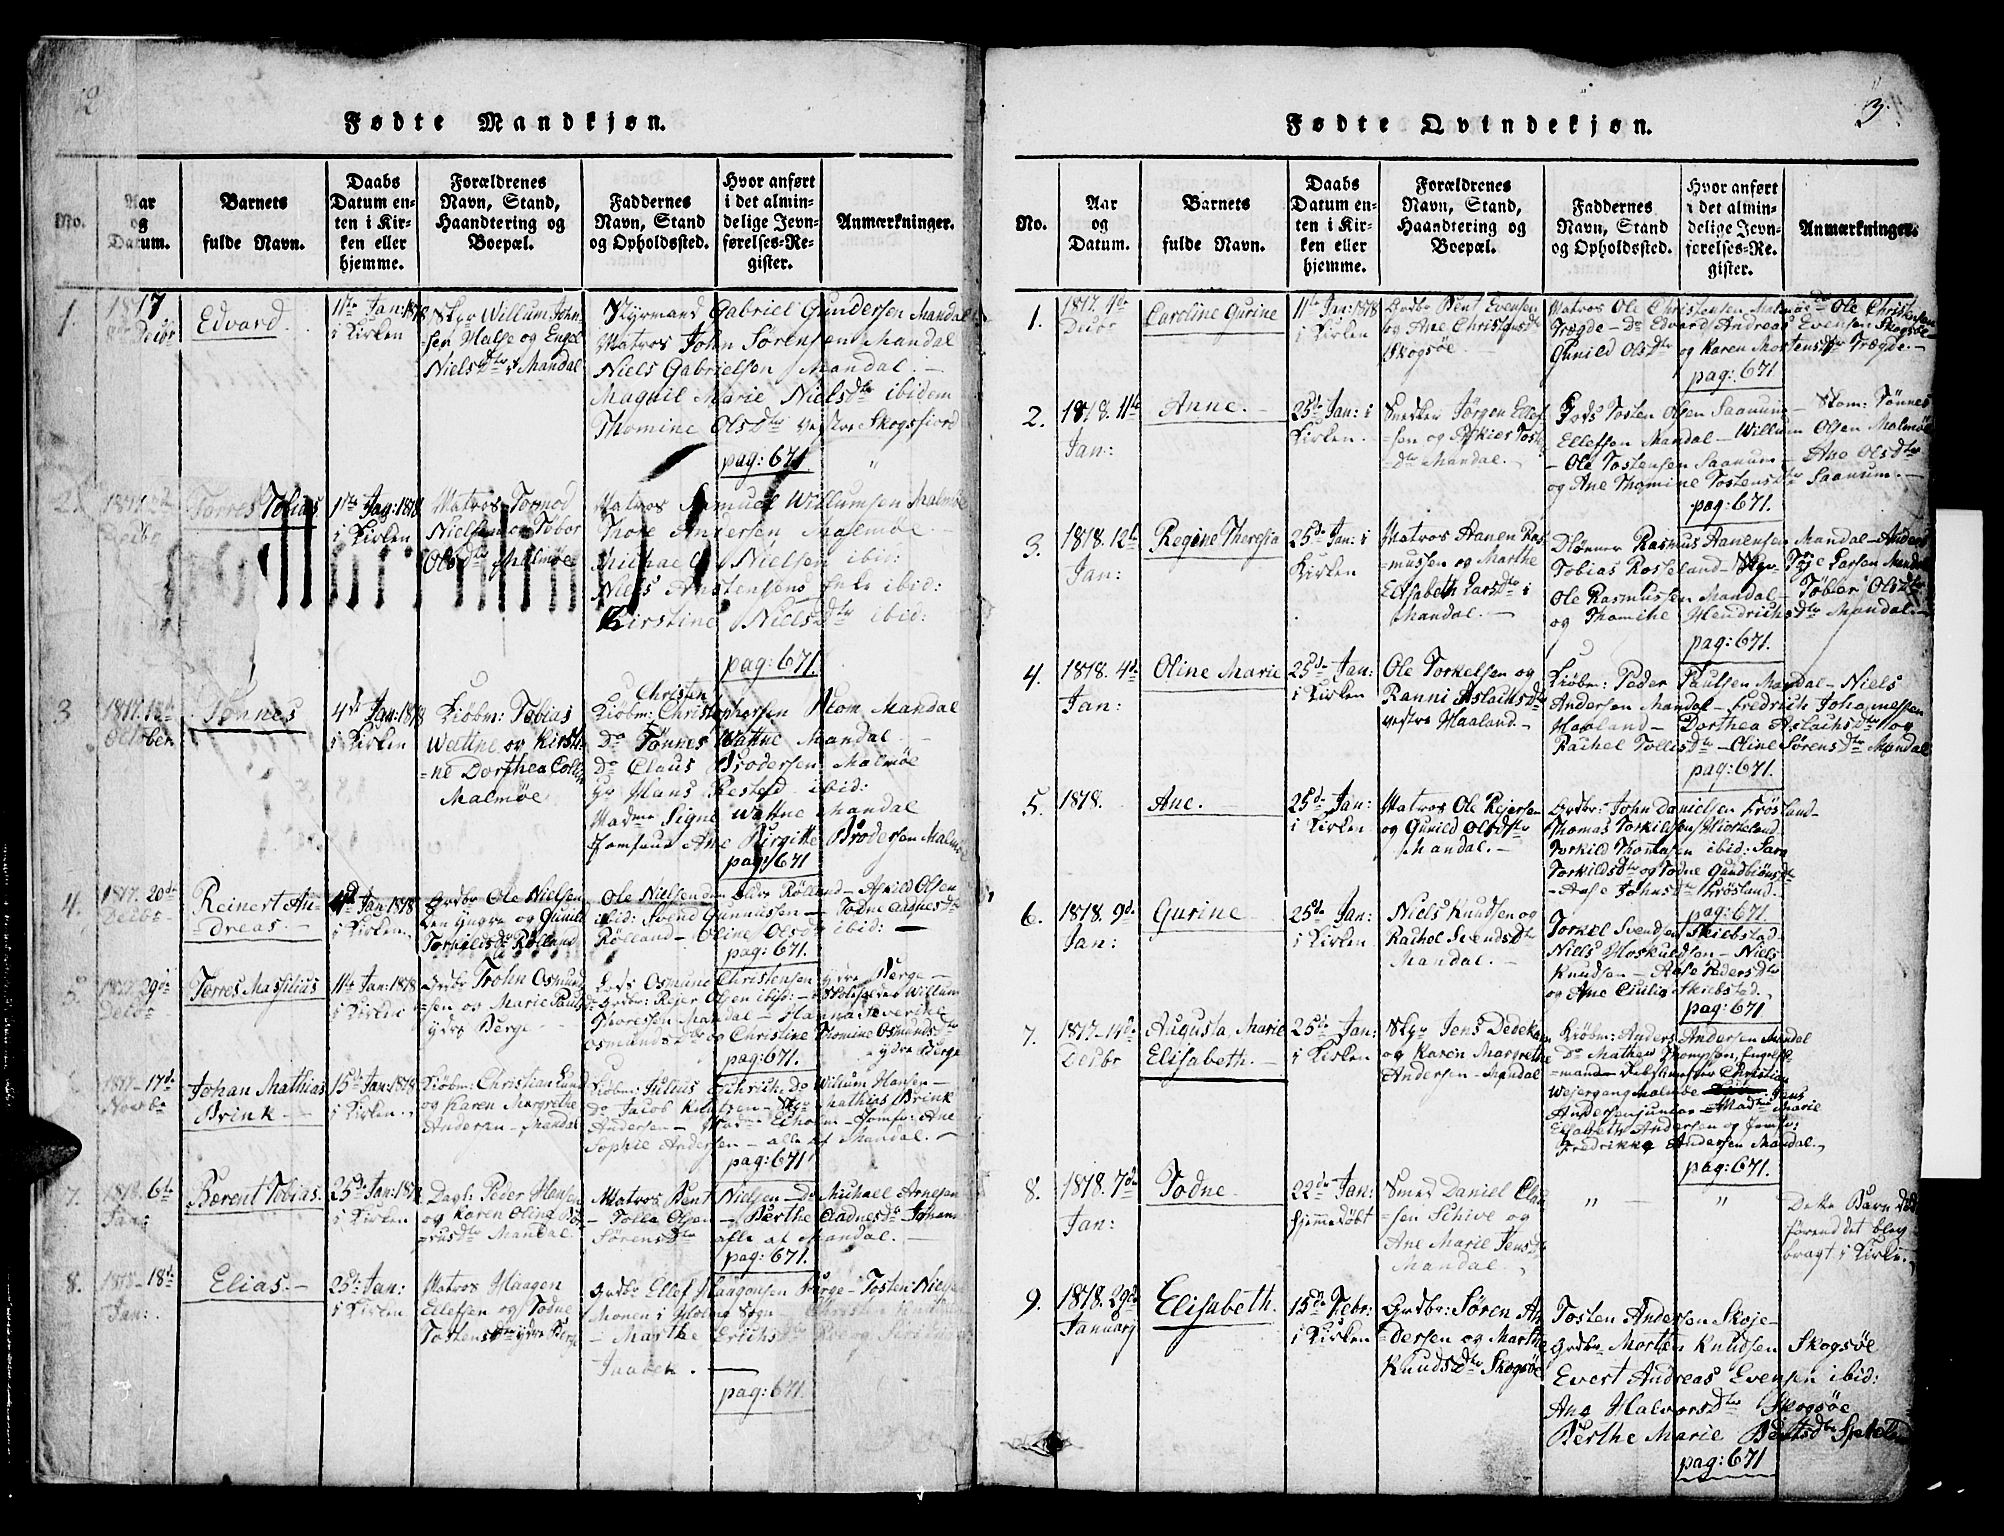 2
Fødte Mandkjøn.
No.
Aar
og
Datum.
Barnets
fulde Navn.
Daabs
Datum en-
ten i Kir-
ken eller
hjemme.
Forældrenes
Navn, Stand,
Haandtering og
Boepæl.
Faddernes
Navn, Stand
og Opholdssted.
Hvor anført
i det almin-
delige Jevn-
førelses-Re-
gister.
Anmærkninger.
1.
1817
Decbr
Edvard.
11te Jan: 1818
i Kirken
Skpr Willum John-
sen Halse og Engel
Nielsdtr i Mandal
Styrmand Gabriel Gundersen Mandal
Matros John Sørensen Mandal
Niels Gabrielsen Mandal.
Magnil Marie Nielsdtr ibidem
Thomine Olsdtr vestre Skogsfiord
pag: 671
2.
1817
Decbr
Torres Tobias
1te Jan: 1818
i Kirken
Matros Tormod
Nielsen og Tobor
Olsdtr Malmøe
Matros Samuel Willumsen Malmøe
Thore Andersen Malmøe
Michael Nielsen ibid:
Niels ibid:
Kirstine Nielsdtr ibid:
pag: 671.
3
1817. 18de
October
Tønnes
4de Jan: 1818
i Kirken
Kiøbm: Tobias
Wattne og Kirsti-
=ne Dorthea Collin
Malmøe
Christen
Kiøbm: Christophersen Stom Mandal
Do Tønnes Wattne Mandal.
Do Claus Brodersen Malmøe
Hans Rested ibid:
Madme Signe Wattne Mandal
Jomfrue Ane Birgitte Brodersen Malmøe
pag: 671
4.
1817. 20de
Decbr
Reinert An-
dreas.
4de Jan: 1818
i Kirken
Grdbr Ole Nielsen
den yngre og Gunild
Torkelsdtr Rølland
Ole Nielsen den eldre Rølland — Askild Olsen
ibid: Svend Gunnufsen — Todne Aagnesdtr
Rølland — Oline Olsdtr ibid:
pag: 671.
5.
1817. 29de
Decbr
Torres Massilius
11te Jan: 1818
i Kirken
Grdbr Trohn Osmund-
=sen og Marie Pauls-
ydre Berge
Osmund Christensen ydre Berge —
Grdbr: Reier Olsen ibid: — Skoleholder Willum
Thoresen Mandal — Hanna Severine
Osmundsdtr og Christine Thomine Osmundsdtr
pag: 671. ydre Berge
1817 – 17de
Novbr
Johan Mathias
Brink —
15de Jan: 1818
i Kirken
Kiøbm: Christian Lund
og Karen Margrethe
Andersen — Mandal
Kiøbm: Julius do Willum Hansen —
do Jacob Knutzen — Skpr Mathias Brink
Andersen — Madme Eeholm — Jomfr: Ane
Sophie Andersen — alle af Mandal. —
pag: 671
7.
1818. 6te
Jan:
Berent Tobias.
25de Jan: 1818
i Kirken
Dagl: Peder Hansen
og Karen Oline
Mandal.
Matros Bent Nielsen — Do Michael Arnesen
— Tolla Olsen — Berthe Eadnesdtr — Johan
Sørensdtr alle af Mandal. —
pag: 671.
8.
1818 – 18de
Jan:
Elias. —
25de Jan:
i Kirken
Matros Haagen
Ellefsen og Todne
Tostensdtr ydre Berge
Grdbr Ellef Haagensen Berge — Tosten Niels
Monen i Holme Sogn
— Marthe Erichsdtr
Jaabek. —
pag: 671.
3.
Fødte Qvindekjøn.
No.
Aar
og
Datum.
Barnets
fulde Navn.
Daabs
Datum en-
ten i Kir-
ken eller
hjemme.
Forældrenes
Navn, Stand,
Haandtering og
Boepæl.
Faddernes
Navn, Stand
og Opholdssted.
Hvor anført
i det almin-
delige Jevn-
førelses-Re-
gister.
Anmærkninger.
1.
1817. 4de
Decbr
Caroline Gurine
11te Jan: 1818
i Kirken
Grdbr Bent Evensen
og Ane Christensdtr
Skogsøe
Matros Ole Christensen Malmøe — Do Ole Christensen
Trægde — Do Edvard Andreas Evensen Skogsøe —
Gunild Olsdtr og Karen Mortensdtr Trægde. —
pag: 671
2.
1818. 11te
Jan:
Anne. —
25de Jan: i
Kirken.
Snedker Jørgen Ellef-
=sen og Askier Tost-
=dtr Mandal. —
Tosten Olsen Saanum — Skom: Tønnes
Ellefsen Mandal — Willum Olsen Malmøe
— Ole Tostensen Saanum — Ane Olsdtr
og Ane Thomine Tostensdtr Saanum. —
pag: 671.
3.
1818. 12te
Jan:
Regine Theresia
25de Jan: i
Kirken
Matros Aanen Ras-
mussen og Marthe
Elisabeth Larsdtr i
Mandal. —
Rasmus Aanensen Mandal — Anders
Tobias Roseland — Skpr Larsen Mandal
Ole Rasmussen Mandal — Tobier Olsdtr
og Thomine Hendrichsdtr Mandal. —
pag: 671.
4.
1818. 4de
Jan:
Oline Marie
25de Jan:
i Kirken
Ole Torkelsen og
Ranni Aslachsdtr
vestre Haaland —
Kiøbm: Peder Paulsen Mandal — Niels
Andersen Mandal — Fredrich Johannessen
Haaland — Dorthea Aslachsdtr og
Rachel Tollisdtr — Oline Sørensdtr Mandal
pag: 671.
5.
1818.
Ane.
25de Jan:
i Kirken
Matros Ole Reiersen
og Gunild Olsdtr
Mandal. —
Grdbr: John Danielsen Frøsland —
Thomas Torkildsen Hiorteland
Torkild Thomasen ibid: Sara
Torkildsdtr og Todne Gundbiønsdtr
— Aase Johnsdtr Frøsland.
pag: 671.
6.
1818. 9de
Jan:
Gurine
25de Jan:
i Kirken
Niels Knudsen og
Rachel Svendsdtr
Mandal. —
Torkel Svendsen Skiebstad
Niels Hoskuldsen — Niels
Knudsen — Aase Pedersdtr
og Ane Cicilia Skiebstad.
pag: 671
7.
1817. 14de
Decbr
Augusta Marie
Elisabeth. —
25de Jan:
i Kirken
Skpr Jens Dedekam
og Karen Margrethe
Andersen — Mandal
Kiøbm: Anders Andersen Mandal
Do Mathew Thompson, Engelsk-
=mand — Christian
Wejergang Malmøe Jens
Andersen junior — Madme Marie
Elisabeth Andersen og Jomfr:
Fredrikke Andersen Mandal. —
pag: 671.
8.
1818. 7de
Jan:
Todne
22de Jan:
hjemmedøbt
Smed Daniel Clau-
=sen Schive og
Ane Marie Jensdtr
Mandal.
" — "
Dette Barn døde
førend det blev
bragt i Kirken
9.
1818. 29de
January
Elisabeth.
15de Febr:
i Kirken
Grdbr: Søren An-
=dersen og Marthe
Knudsdtr Skogsøe
Tosten Andersen Skoje —
Grdbr Morten Knudsen Skogsøe
Evert Andreas Evensen ibid:
Ane Halvorsdtr Skogsøe
Berthe Marie Bentsdtr
pag: 671